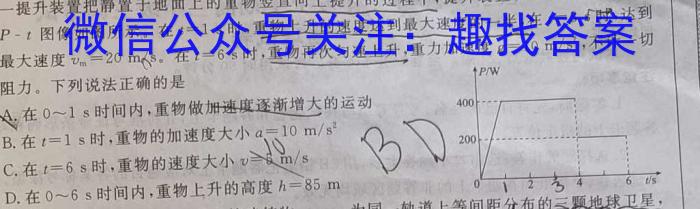 一提升装置把静置于地面上的重物竖直向上提升的过程中,提升装置
P-t 图像 时,重物上升的速度达到最大速 达到
微信公众号关注：趣找答案
最大速度 vm=20 m/s。在 t=6 s时,重物再次匀速上升,重力加速度 一切
阻力。下列说法正确的是
A.在 0~1 s 时间内,重物做加速度逐渐增大的运动
B.在 t=1 s 时,重物的加速度大小 a=10 m/s²
C.在 t=6 s 时,重物的速度大小 v=5 m/s
10
D.在 0~6 s 时间内,重物上升的高度 h=85 m
BD
P/W
400
200
0 1 2 3 4 6 t/s
为同一轨道上等间距分布的三颗地球卫星,